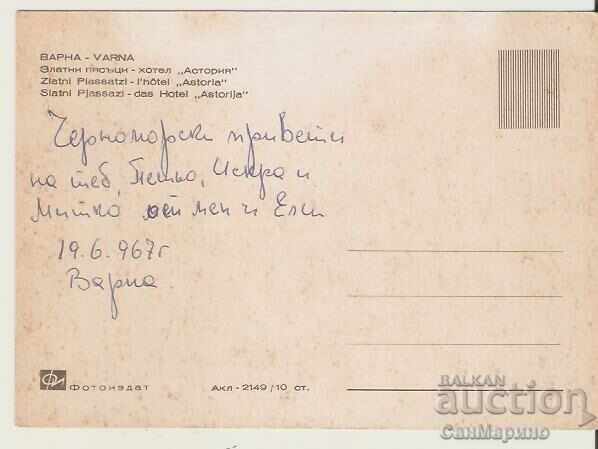 ВАРНА - VARNA
Златни пясъци - хотел „Астория"
Zlatni Piassatzi - l'hôtel „Astoria"
Slatni Pjassazi - das Hotel „Astorija"
Черноморски привети
на теб, Петьо, Искра и
Митко от мен и Ели
19.6.967г
Варна
Фотоиздат
Акл - 2149/10 ст.
BALKAN
auction
СанМарино